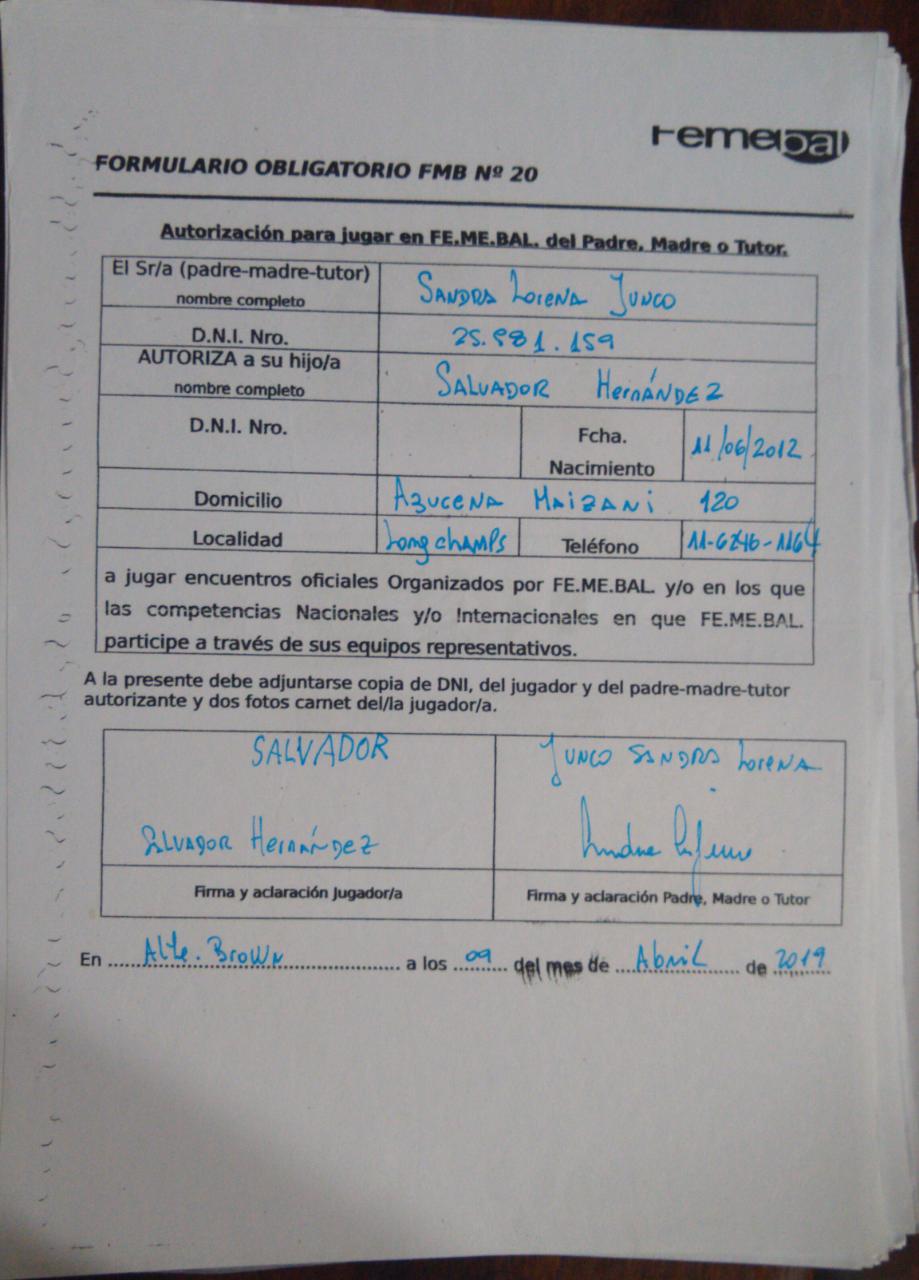 Femebal
FORMULARIO OBLIGATORIO FMB Nº 20
Autorización para jugar en FE.ME.BAL. del Padre, Madre o Tutor.
El Sr/a (padre-madre-tutor) nombre completo SANDRA LORENA JUNCO
D.N.I. Nro. 25.981.159
AUTORIZA a su hijo/a nombre completo SALVADOR HERNÁNDEZ
D.N.I. Nro. Fcha. Nacimiento 11/06/2012
Domicilio AZUCENA MAIZANI 120
Localidad LongCHAMPS Teléfono 11-6246-1164
a jugar encuentros oficiales Organizados por FE.ME.BAL. y/o en los que
las competencias Nacionales y/o Internacionales en que FE.ME.BAL.
participe a través de sus equipos representativos.
A la presente debe adjuntarse copia de DNI, del jugador y del padre-madre-tutor
autorizante y dos fotos carnet del/la jugador/a.
SALVADOR JUNCO SANDRA LORENA
SALVADOR HERNÁNDEZ
Firma y aclaración Jugador/a Firma y aclaración Padre, Madre o Tutor
En Alte. Brown a los 09 del mes de Abril de 2019